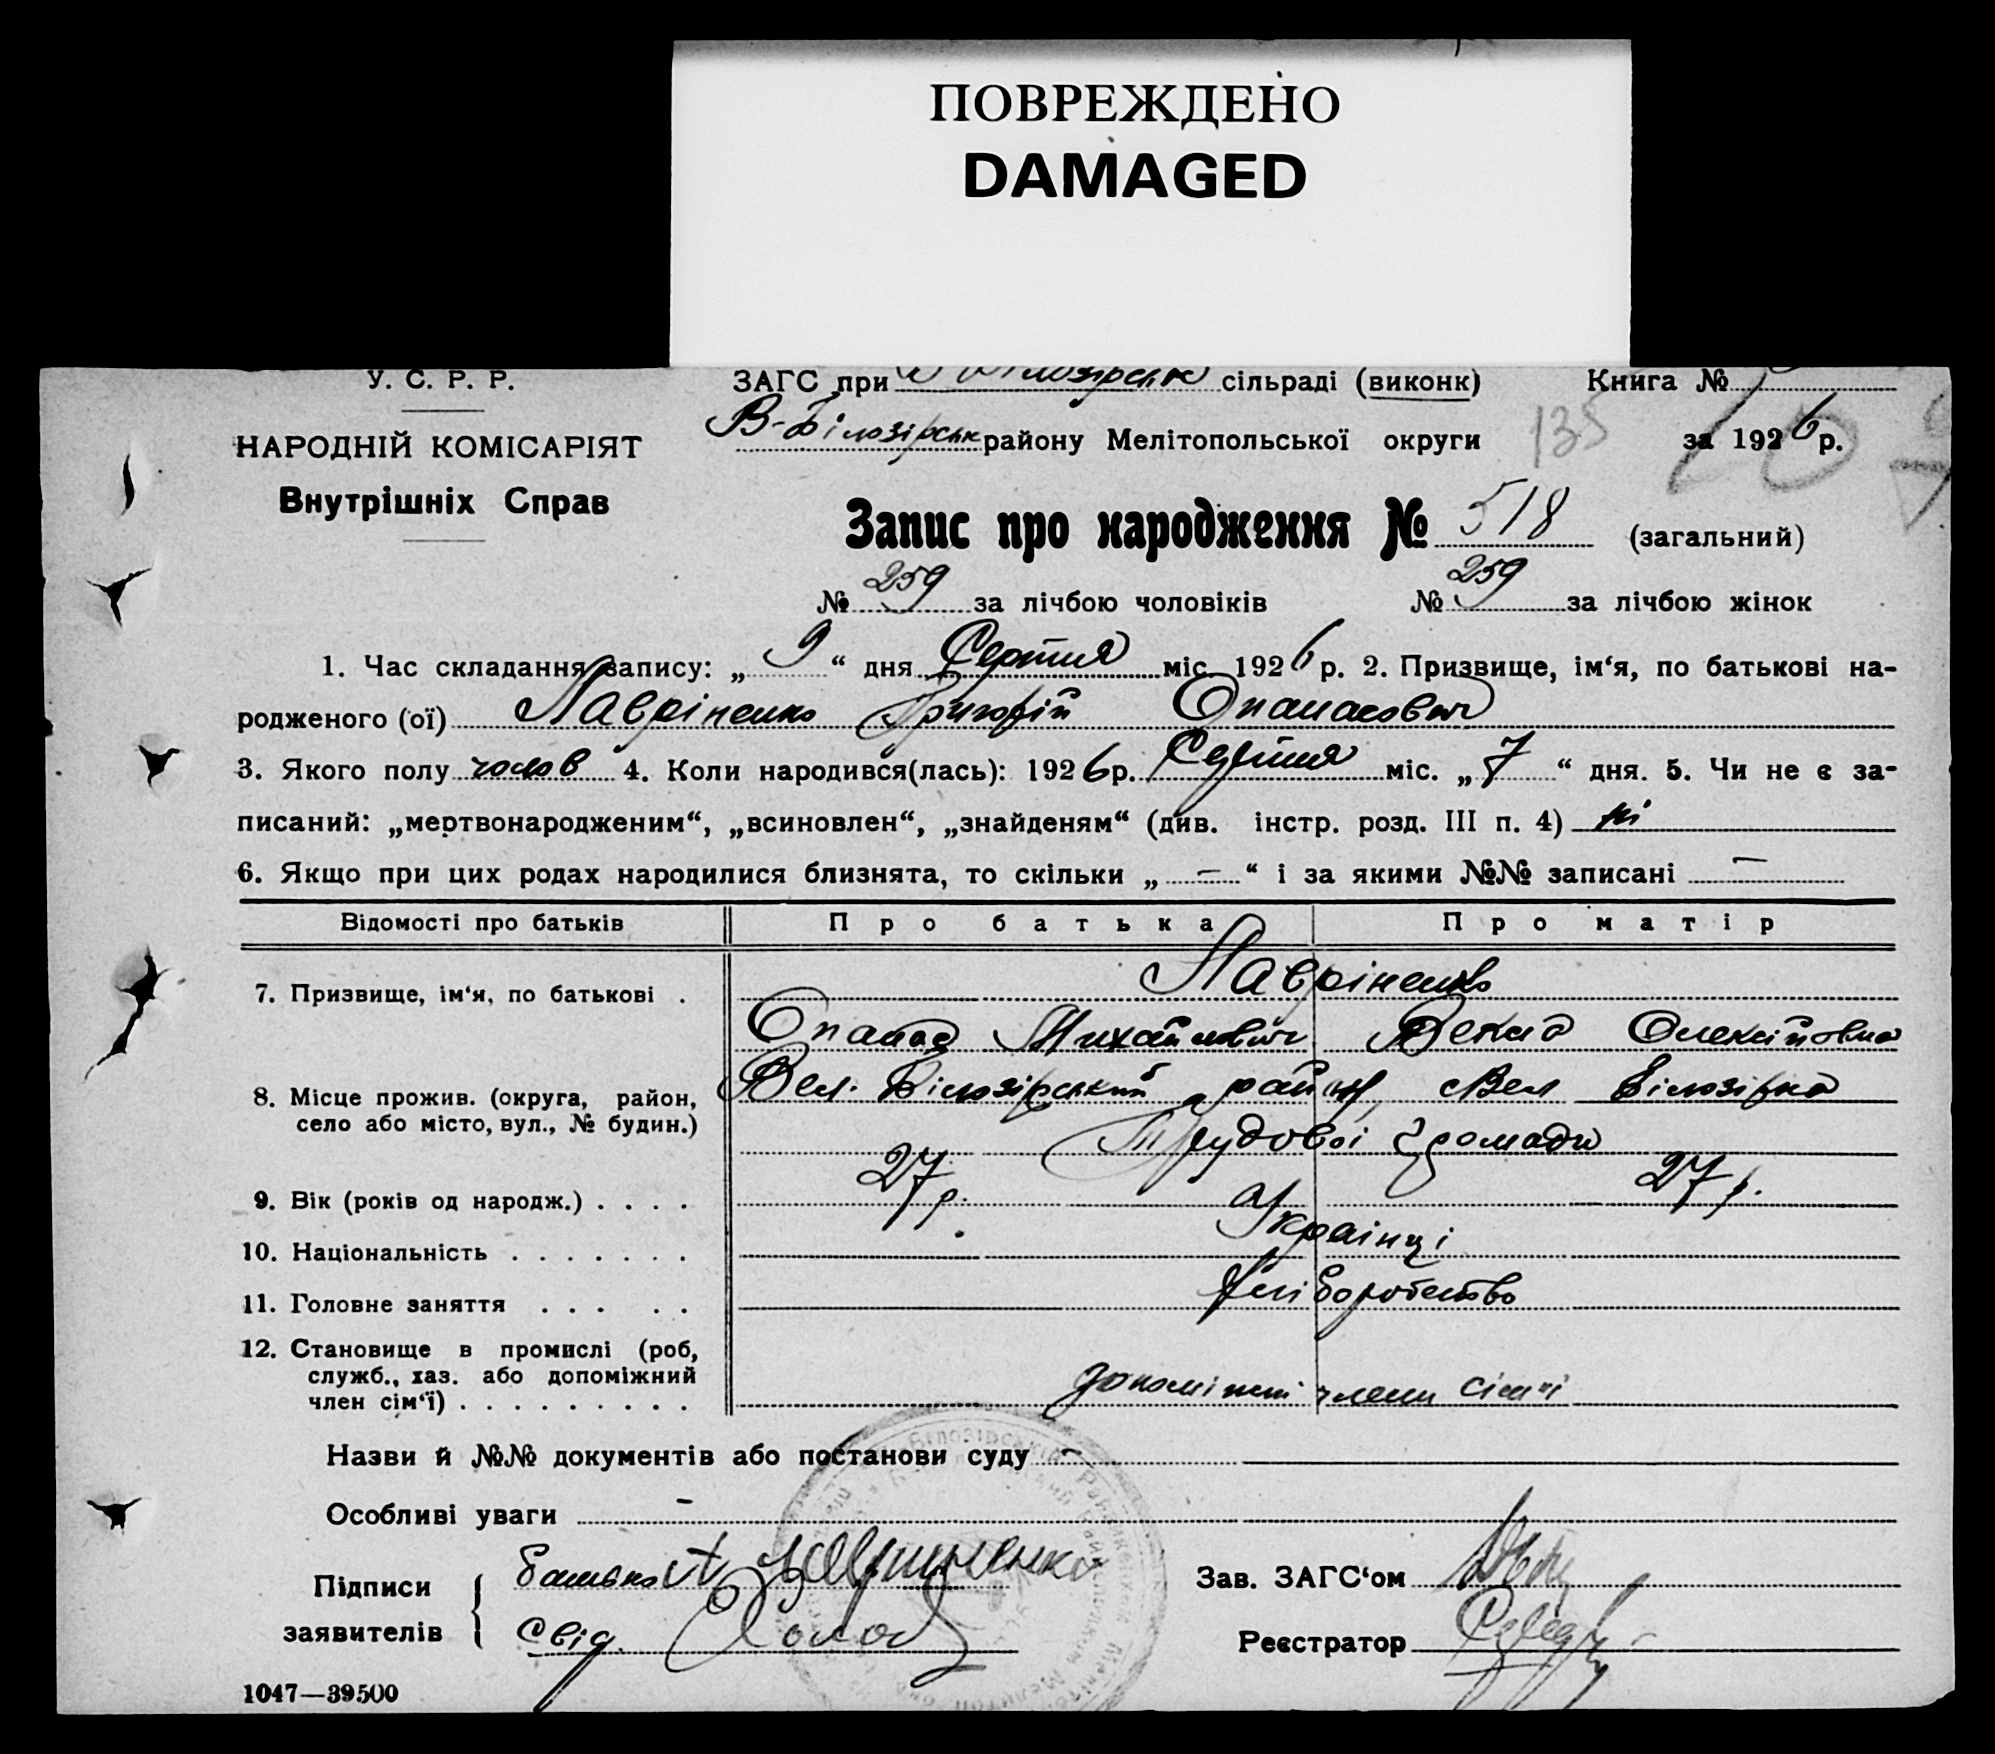 ПОВРЕЖДЕНО
DAMAGED
У. С. Р. Р.
ЗАГС при сільраді (виконк) Книга №
В-Білозірськ району Мелітопольської округи 135 за 1926 р.
НАРОДНІЙ КОМІСАРІЯТ
Внутрішніх Справ
Запис про народження № 518 (загальний)
№ 259 за лічбою чоловіків № 259 за лічбою жінок
1. Час складання запису: „ 9 “ дня Серпня міс. 1926 р. 2. Призвище, ім‘я, по батькові на-
родженого (ої) Лавріненко Григорій Опанасович
3. Якого полу чолов 4. Коли народився(лась): 1926 р. Серпня міс. „ 7 “ дня. 5. Чи не є за-
писаний: „мертвонародженим“, „всиновлен“, „знайденям“ (див. інстр. розд. III п. 4) ні
6. Якщо при цих родах народилися близнята, то скільки „ — “ і за якими №№ записані —
Відомості про батьків Про батька Про матір
7. Призвище, ім‘я, по батькові . Лавріненко
Опанас Михайлович Олексіївна
8. Місце прожив. (округа, район, село або місто, вул., № будин.) Вел. Білозірський район, Вел Білозірка
Трудової громади
9. Вік (років од народж.) . . . . 27 р. 27 р.
10. Національність . . . . . . . Українці
11. Головне заняття . . . . . Хліборобство
12. Становище в промислі (роб,
служб., хаз. або допоміжний
член сім‘ї) . . . . . . . . . допоміжні члени сім'ї
Назви й №№ документів або постанови суду —
Особливі уваги —
Підписи заявителів { батько А Лавриненко
Свід.
Зав. ЗАГС‘ом
Реєстратор
1047—39500